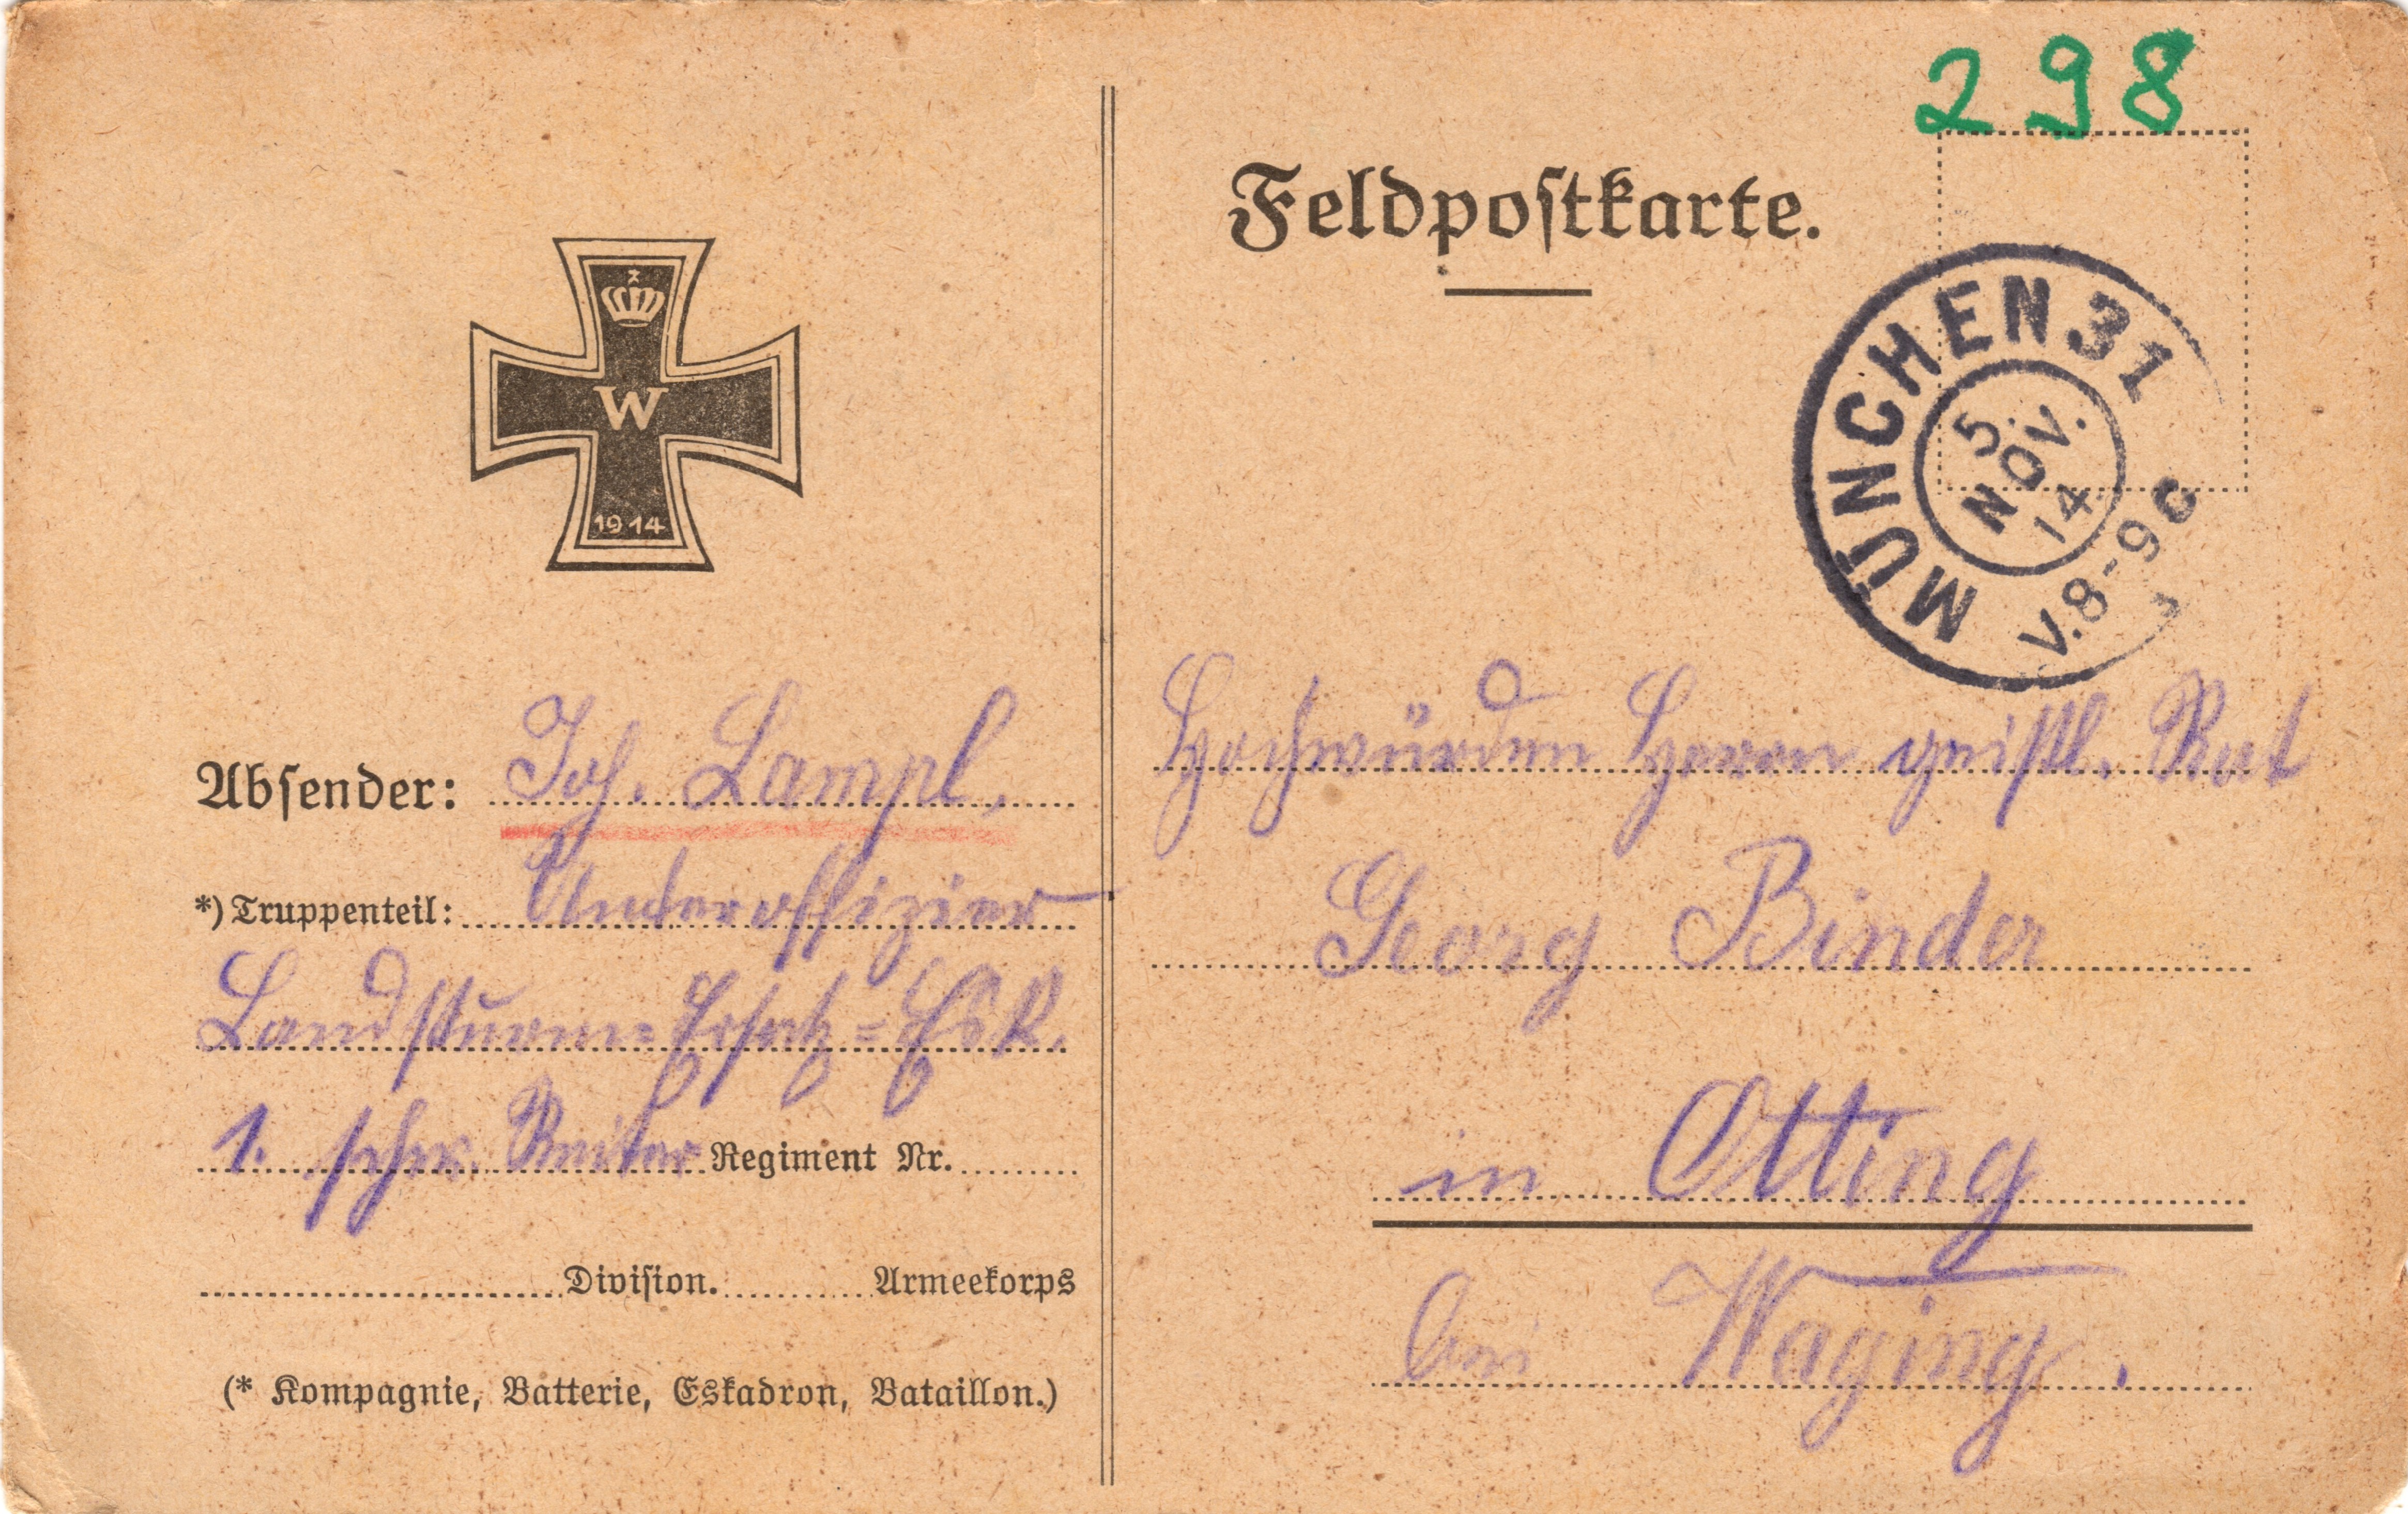 298
Feldpostkarte.
MÜNCHEN 31
5.
NOV.
14
V.8-9
W
1914
Absender: Joh. Lampl,
*) Truppenteil: Unteroffizier
Landsturm=Ersatz=Esk.
1. schw. Reiter Regiment Nr.
Division. Armeekorps
(* Kompagnie, Batterie, Eskadron, Bataillon.)
Hochwürden Herrn geistl. Rat
Georg Binder
in Otting
bei Waging.